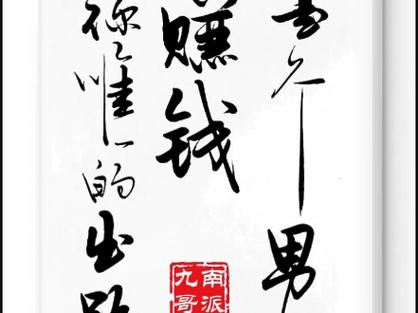 个男
赚钱
你唯一的出路
南派
九哥